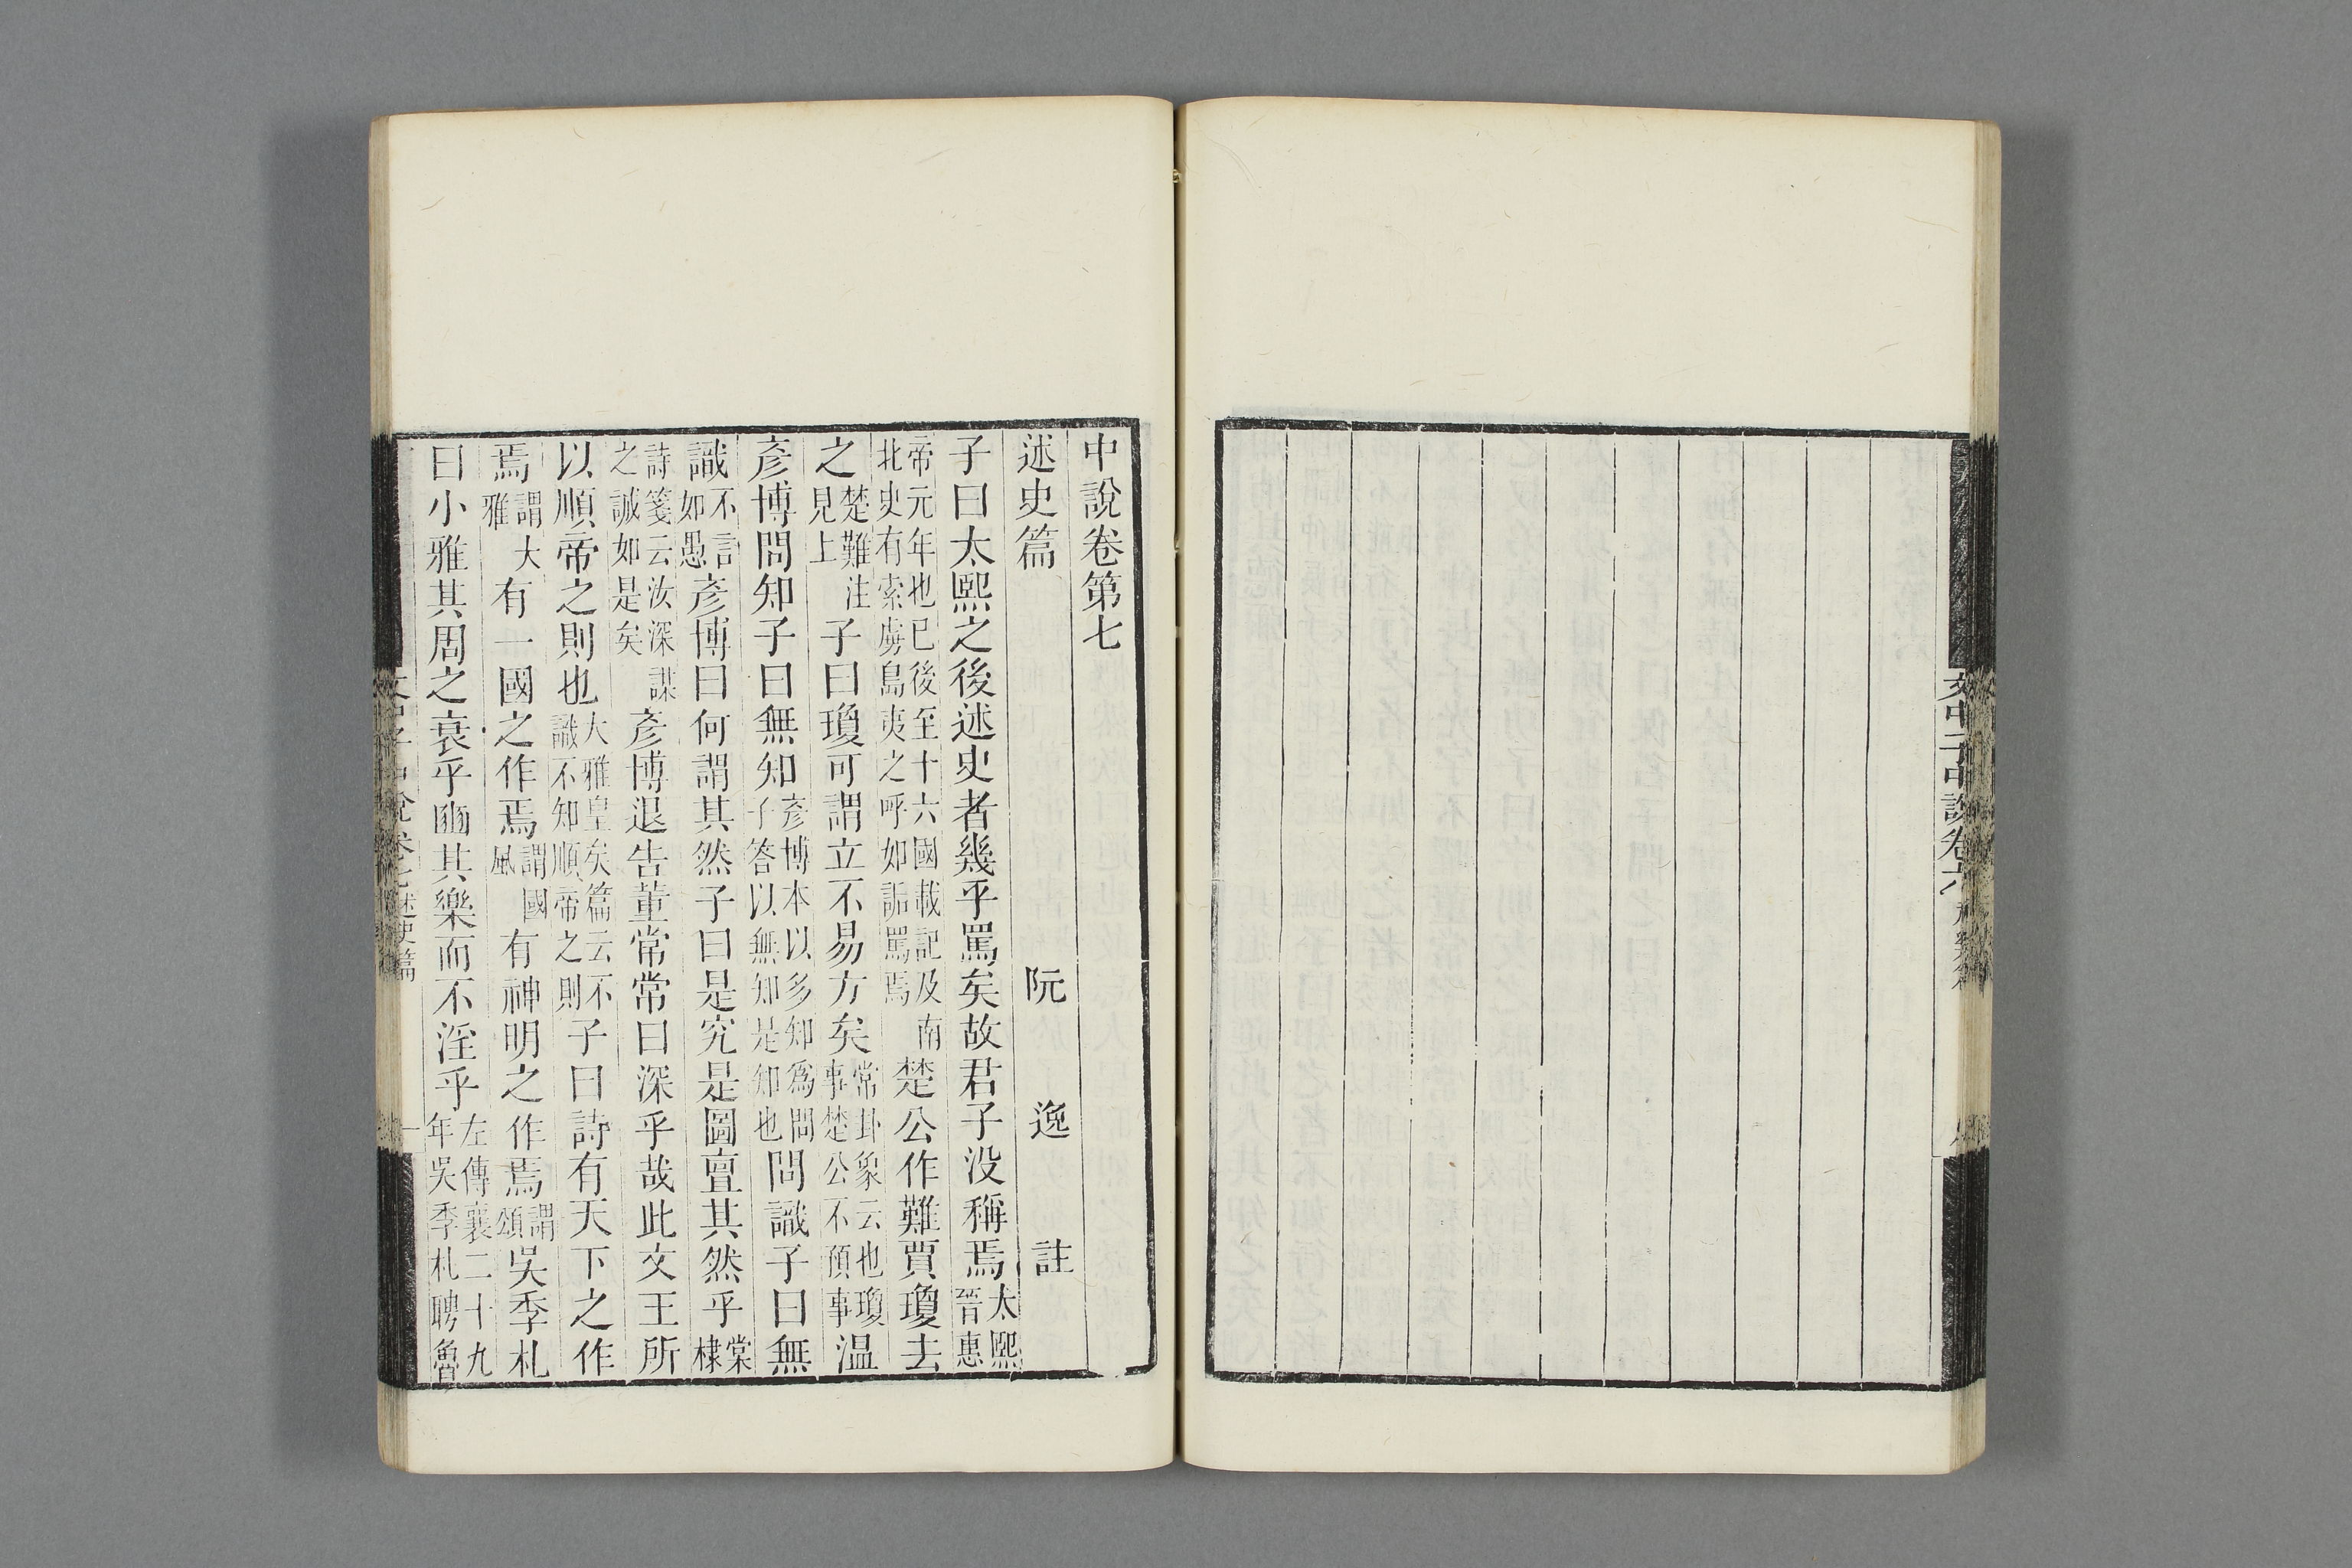 文中子中說卷六
中說卷第七
述史篇 阮 逸 註
子曰太熙之後述史者幾乎罵矣故君子没稱焉太熙晉惠
帝元年也已後至十六國載記及南北史有索虜島夷之呼如詬罵焉楚公作難賈瓊去
之楚難注見上子曰瓊可謂立不易方矣常卦象云也瓊事楚公不預事温
彥博問知子曰無知彥博本以多知為問子答以無知是知也問識子曰無
識不言如愚彥博曰何謂其然子曰是究是圖亶其然乎棠棣
詩箋云汝深謀之誠如是矣彥博退告董常常曰深乎哉此文王所
以順帝之則也大雅皇矣篇云不識不知順帝之則子曰詩有天下之作
焉謂大雅有一國之作焉謂國風有神明之作焉謂頌吳季札
曰小雅其周之衰乎豳其樂而不淫乎左傳襄二十九年吳季札聘魯
述史篇 一